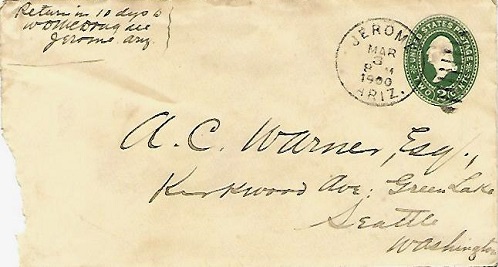 Return in 10 days to
Jerome Ariz
JEROME
MAR
3
8 M
1900
ARIZ.
UNITED STATES POSTAGE
TWO
2
A. C. Warner, Esq.,
Kirkwood Ave: Green Lake
Seattle
Washington